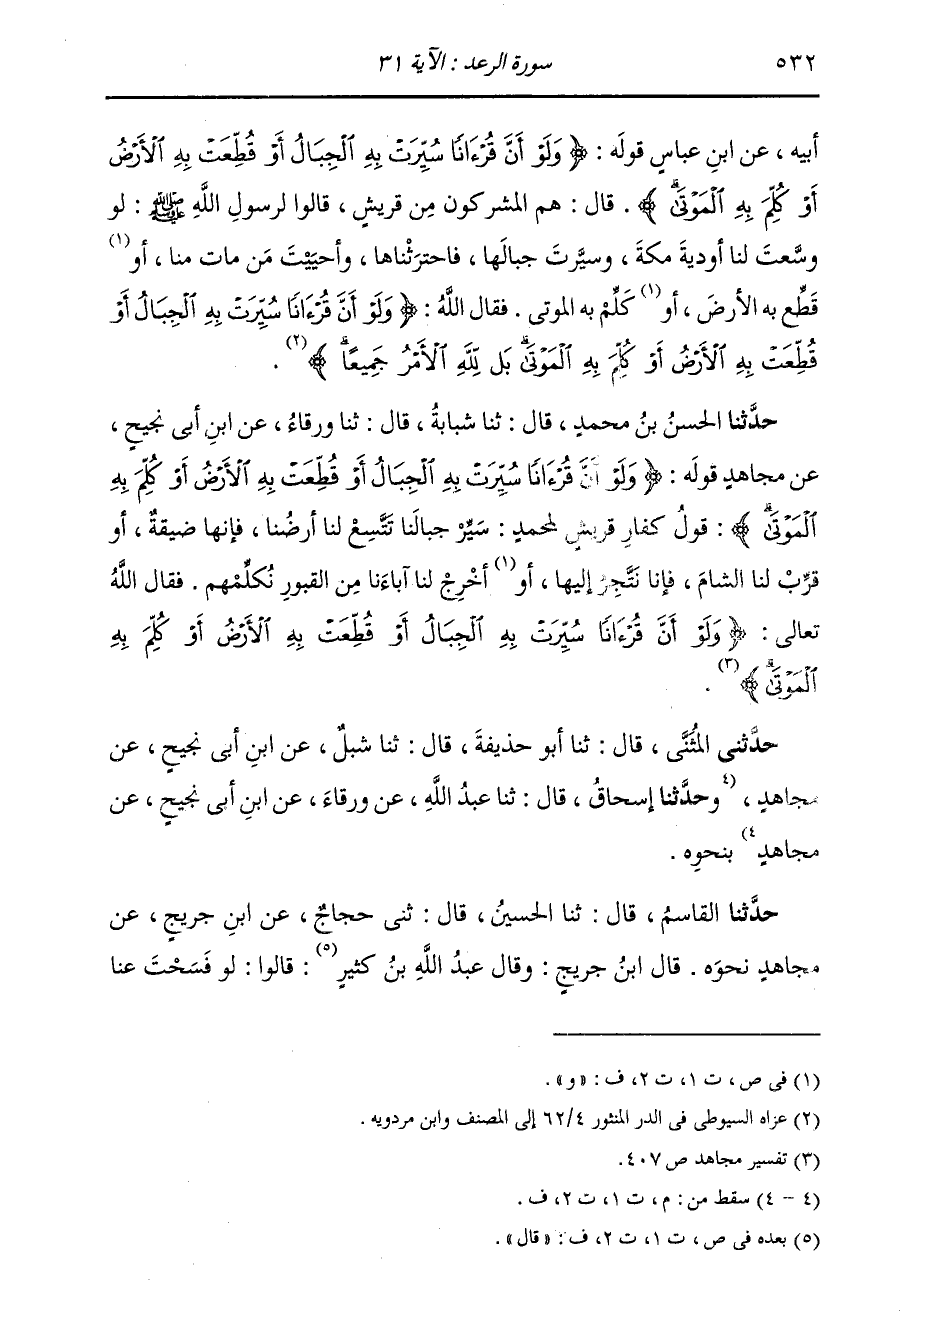 ٥٣٢ سورة الرعد : الآية ٣١
أبيه ، عن ابنِ عباسٍ قولَه : ﴿ وَلَوْ أَنَّ قُرْءَانًا سُيِّرَتْ بِهِ ٱلْجِبَالُ أَوْ قُطِّعَتْ بِهِ ٱلْأَرْضُ
أَوْ كُلِّمَ بِهِ ٱلْمَوْتَىٰۗ ﴾ . قال : هم المشركون مِن قريشٍ ، قالوا لرسولِ اللَّهِ ﷺ : لو
وسَّعتَ لنا أوديةَ مكةَ ، وسيَّرتَ جبالَها ، فاحترَثْناها ، وأحيَيْتَ مَن مات منا ، أو(١)
قَطِّع به الأرضَ ، أو(١) كَلِّمْ به الموتى . فقال اللَّهُ : ﴿ وَلَوْ أَنَّ قُرْءَانًا سُيِّرَتْ بِهِ ٱلْجِبَالُ أَوْ
قُطِّعَتْ بِهِ ٱلْأَرْضُ أَوْ كُلِّمَ بِهِ ٱلْمَوْتَىٰۗ بَل لِّلَّهِ ٱلْأَمْرُ جَمِيعًاۗ ﴾(٢) .
حدَّثنا الحسنُ بنُ محمدٍ ، قال : ثنا شبابةُ ، قال : ثنا ورقاءُ ، عن ابنِ أبى نجيحٍ ،
عن مجاهدٍ قولَه : ﴿ وَلَوْ أَنَّ قُرْءَانًا سُيِّرَتْ بِهِ ٱلْجِبَالُ أَوْ قُطِّعَتْ بِهِ ٱلْأَرْضُ أَوْ كُلِّمَ بِهِ
ٱلْمَوْتَىٰۗ ﴾ : قولُ كفارِ قريشٍ لمحمدٍ : سَيِّرْ جبالَنا تَتَّسِعْ لنا أرضُنا ، فإنها ضيقةٌ ، أو
قرِّبْ لنا الشامَ ، فإنا نَتَّجِرُ إليها ، أو(١) أخْرِجْ لنا آباءَنا مِن القبورِ نُكلِّمْهم . فقال اللَّهُ
تعالى : ﴿ وَلَوْ أَنَّ قُرْءَانًا سُيِّرَتْ بِهِ ٱلْجِبَالُ أَوْ قُطِّعَتْ بِهِ ٱلْأَرْضُ أَوْ كُلِّمَ بِهِ
ٱلْمَوْتَىٰۗ ﴾(٣) .
حدَّثنى المُثَنَّى ، قال : ثنا أبو حذيفةَ ، قال : ثنا شبلٌ ، عن ابنِ أبى نجيحٍ ، عن
مجاهدٍ ، (٤وحدَّثنا إسحاقُ ، قال : ثنا عبدُ اللَّهِ ، عن ورقاءَ ، عن ابنِ أبى نجيحٍ ، عن
مجاهدٍ٤) بنحوِه .
حدَّثنا القاسمُ ، قال : ثنا الحسينُ ، قال : ثنى حجاجٌ ، عن ابنِ جريجٍ ، عن
مجاهدٍ نحوَه . قال ابنُ جريجٍ : وقال عبدُ اللَّهِ بنُ كثيرٍ(٥) : قالوا : لو فَسَحْتَ عنا
(١) فى ص ، ت ١، ت ٢، ف : «و» .
(٢) عزاه السيوطى فى الدر المنثور ٤/ ٦٢ إلى المصنف وابن مردويه .
(٣) تفسير مجاهد ص ٤٠٧.
(٤ - ٤) سقط من : م ، ت ١، ت ٢، ف .
(٥) بعده فى ص ، ت ١، ت ٢، ف : «قال» .